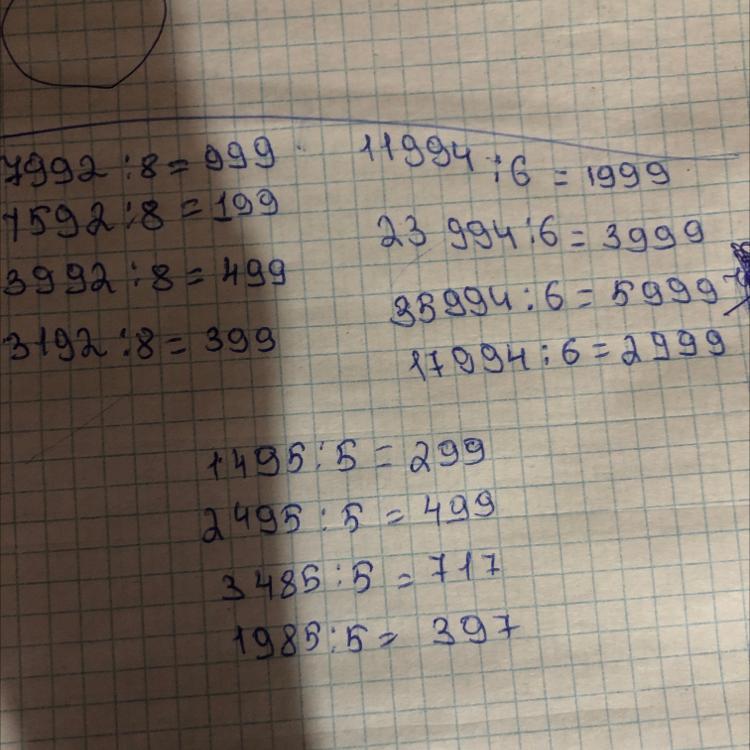 7992:8=999
1592:8=199
3992:8=499
3192:8=399
11994:6=1999
23 994:6=3999
35994:6=5999
17994:6=2999
1495:5=299
2495:5=499
3485:5=717
1985:5=397